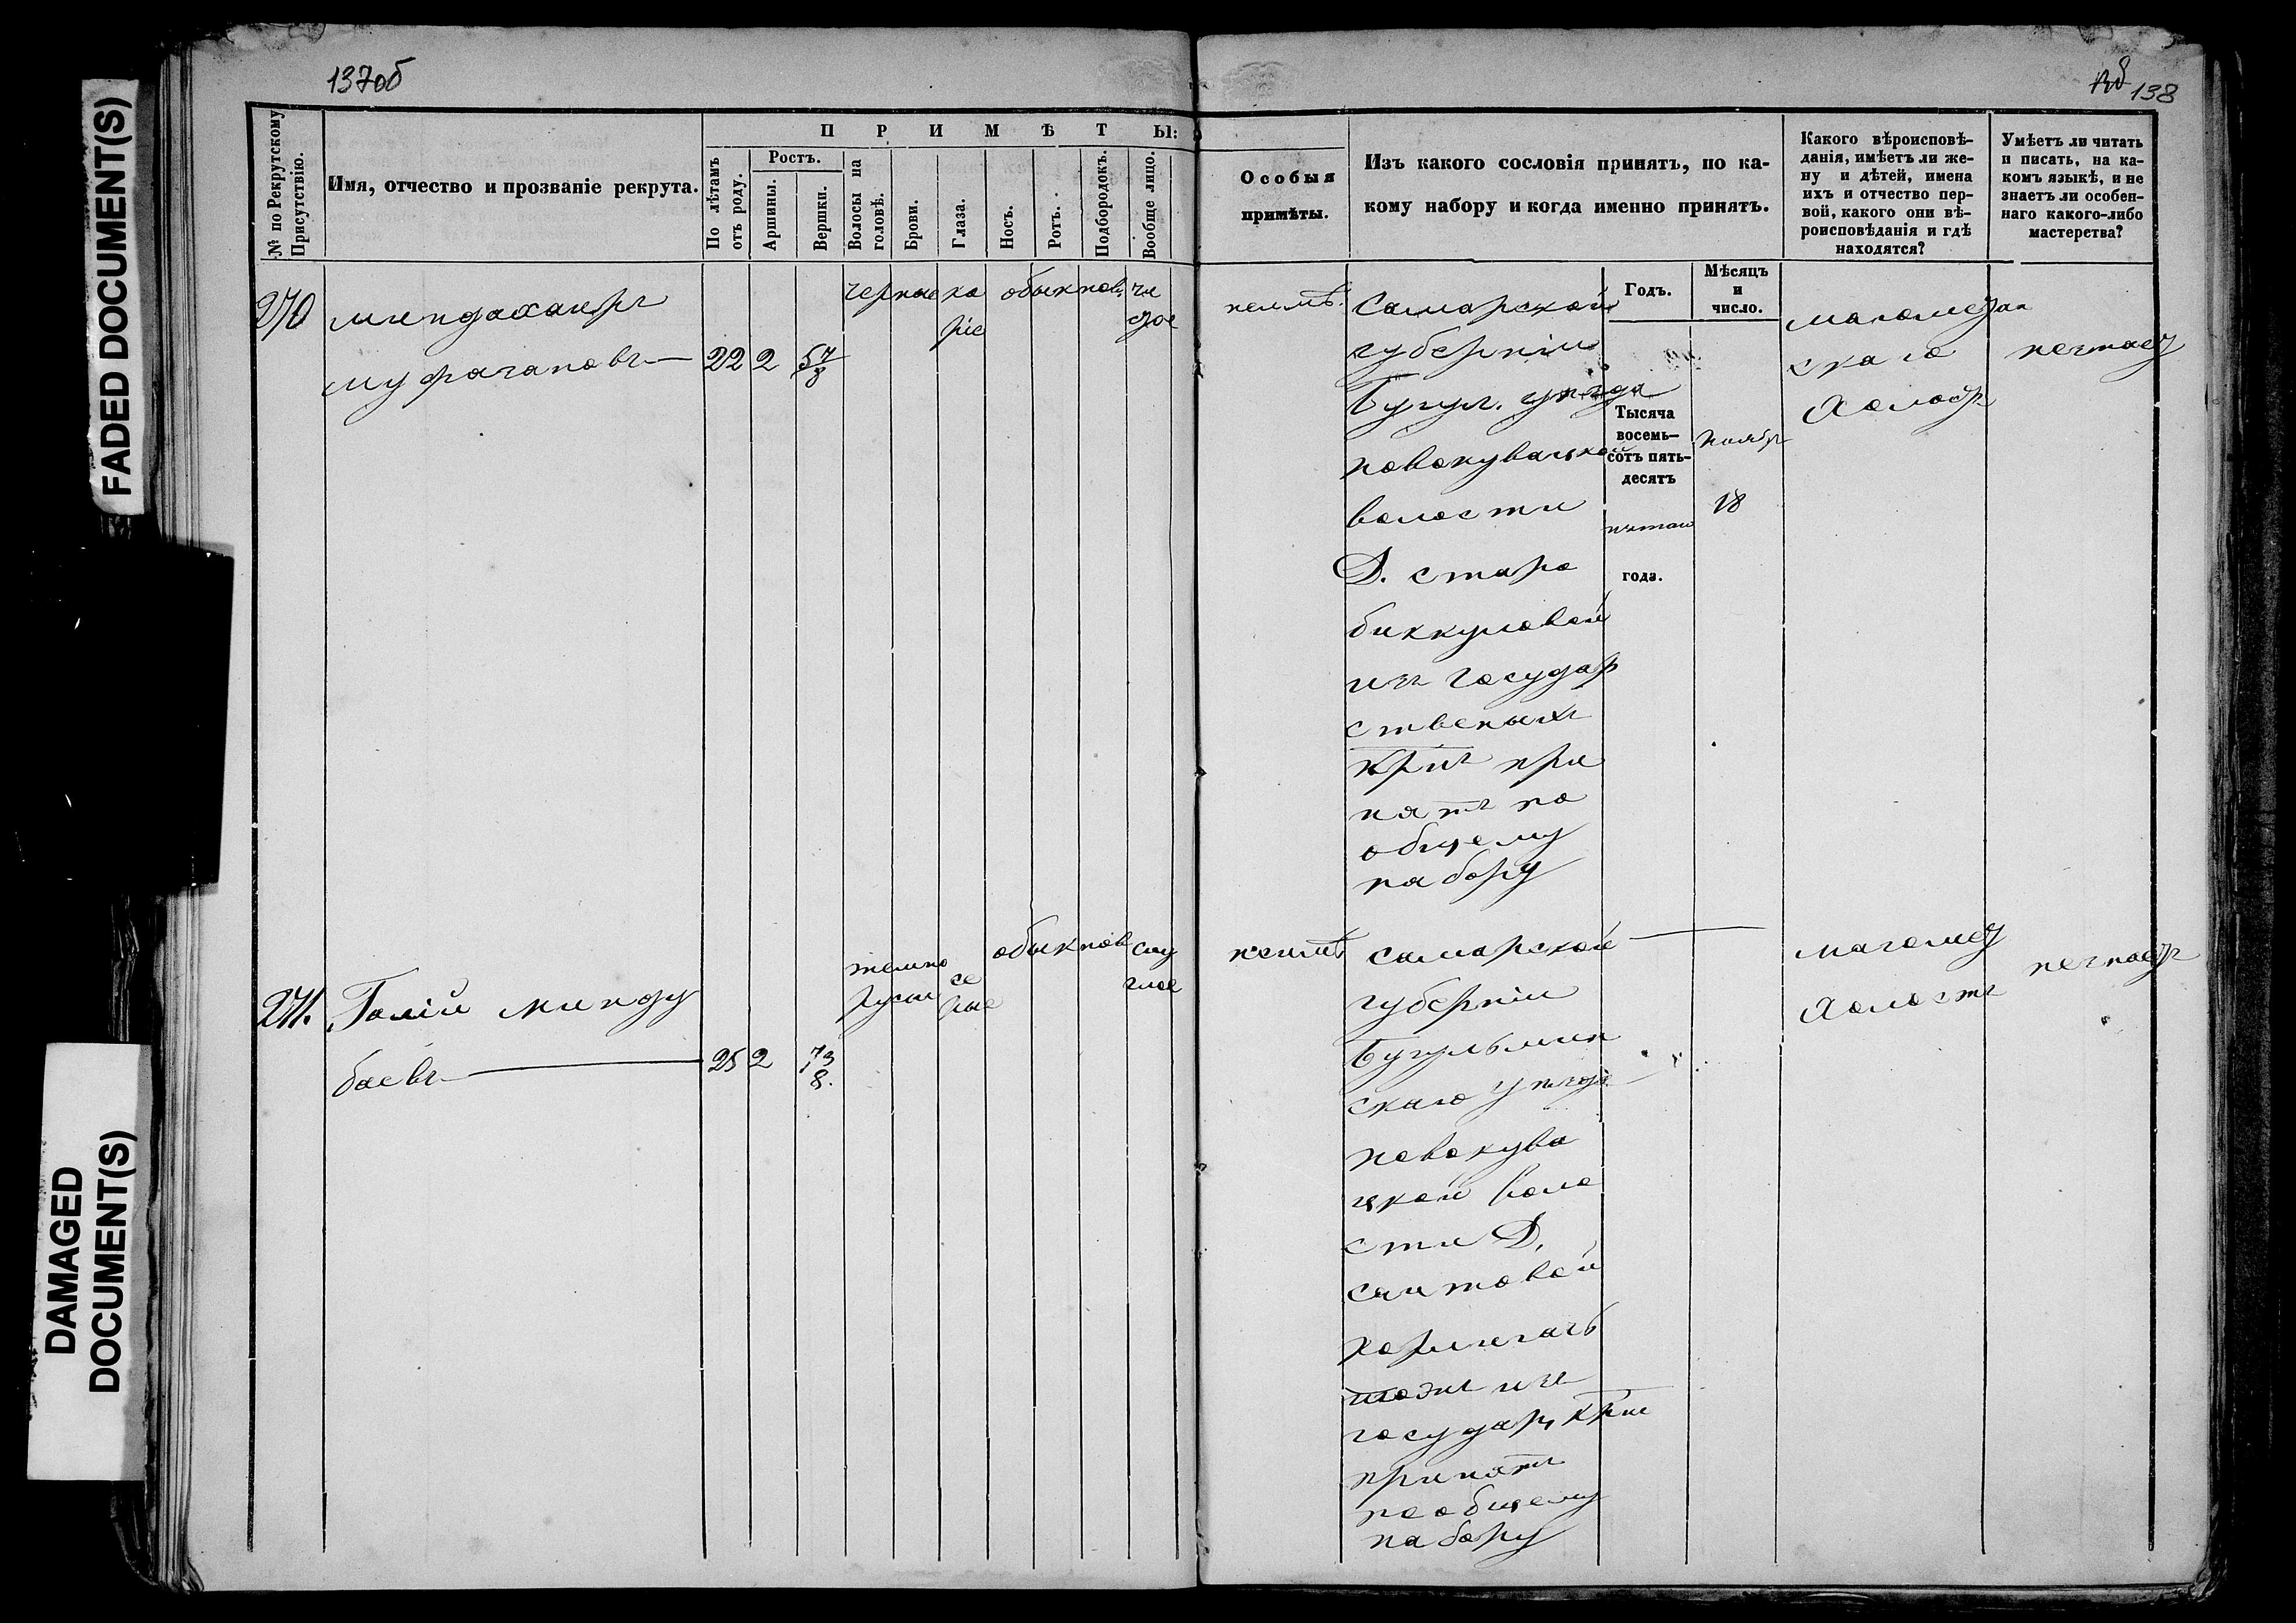 FADED DOCUMENT(S)
DAMAGED
DOCUMENT(S)
137об
138
№ по Рекрутскому
Присутствію.
Имя, отчество и прозваніе рекрута.
ПРИМѢТЫ:
По лѣтамъ
отъ роду.
Ростъ.
Аршины.
Вершки.
Волосы на
головѣ.
Брови.
Глаза.
Носъ.
Ротъ.
Подбородокъ.
Вообще лицо.
Особыя
примѣты.
Изъ какого сословія принятъ, по ка-
кому набору и когда именно принятъ.
Какого вѣроисповѣ-
данія, имѣетъ ли же-
ну и дѣтей, имена
ихъ и отчество пер-
вой, какого они вѣ-
роисповѣданія и гдѣ
находятся?
Умѣетъ ли читать
и писать, на ка-
комъ языкѣ, и не
знаетъ ли особен-
наго какого-либо
мастерства?
270
миндаханръ
муфагановъ
22 2 5 7/8
черные
ка
ріе
обыкнов.
чи
стое
неимѣ.
Самарской
губерніи
Бугул. уѣзда
новокувацкой
волости
Д. старо
биккуловой
изъ государ
ственыхъ
крнъ при
нятъ по
общему
набору
Годъ.
Тысяча
восемь-
сотъ пять-
десятъ
пятаго
года.
Мѣсяцъ
и
число.
Ноябр
18
магомедан
скаго
Холостъ
незнаетъ
271.
Галій минду
баевъ
25 2 7 3/8.
темно
русые
се
рые
обыкнов
сму
глое
неимѣ
самарской
губерніи
Бугульмин
скаго уѣзда
новокува
цкой воло
сти Д.
саитовой
изъ
государ, крнъ
принятъ
по общему
набору
магомед
Холостъ
незнаетъ